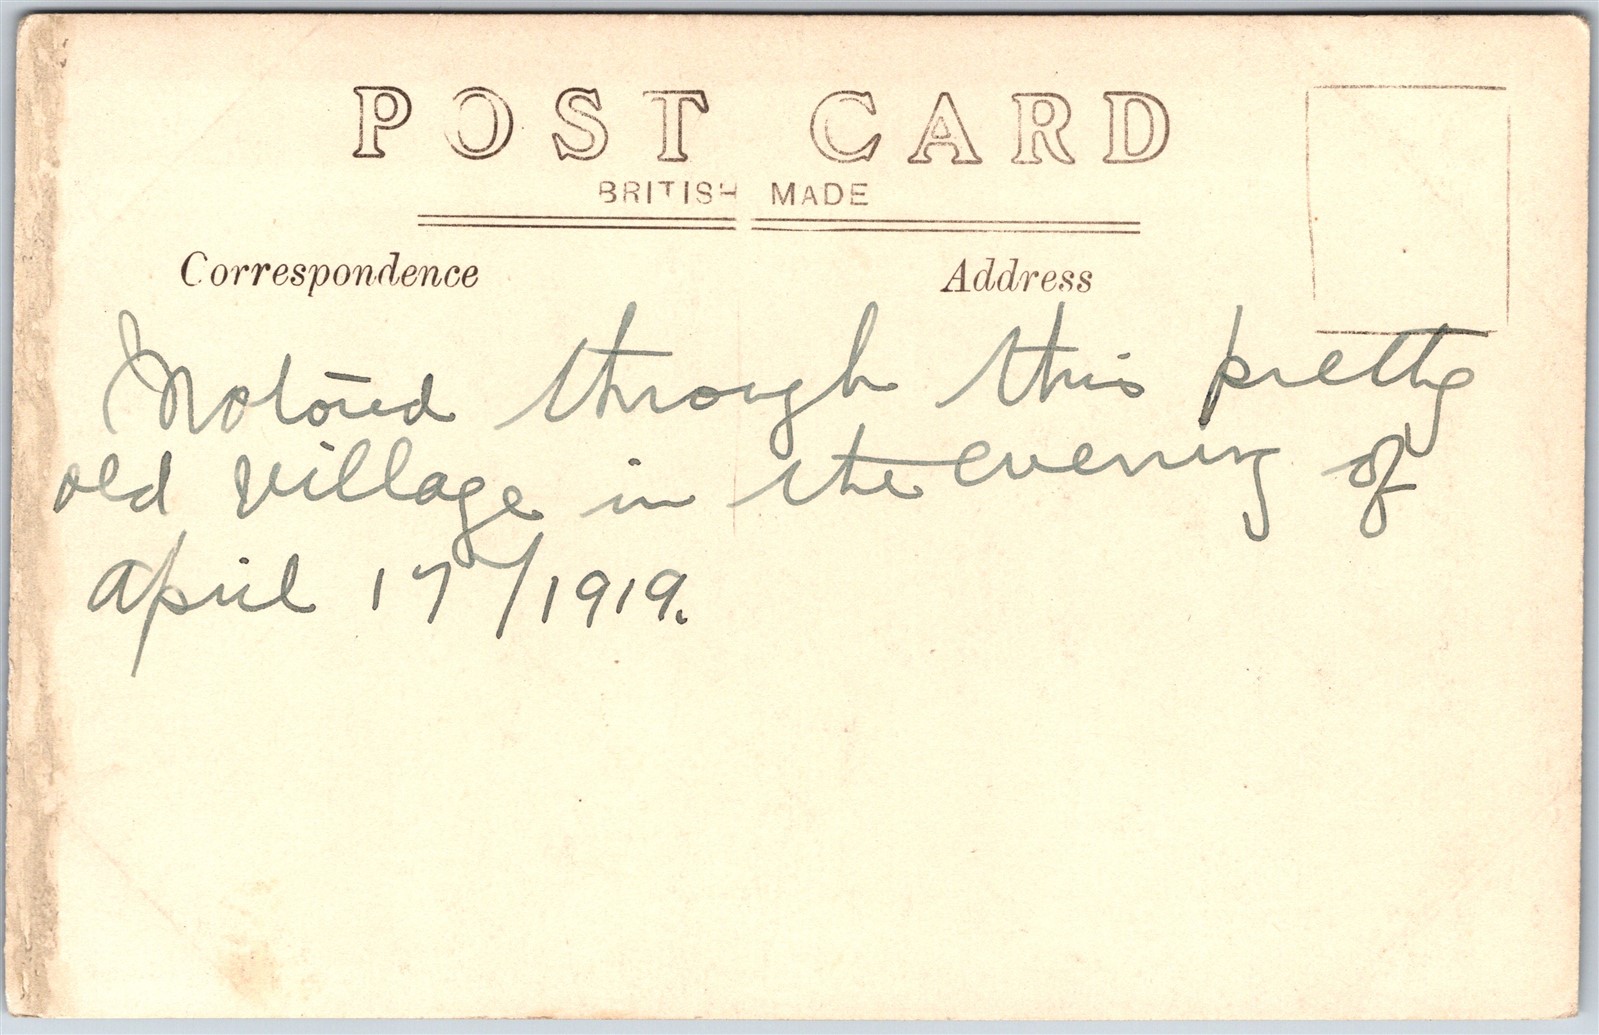 POST CARD
BRITISH MADE
Correspondence
Address
Motored through this pretty
old village in the evening of
April 17/1919.